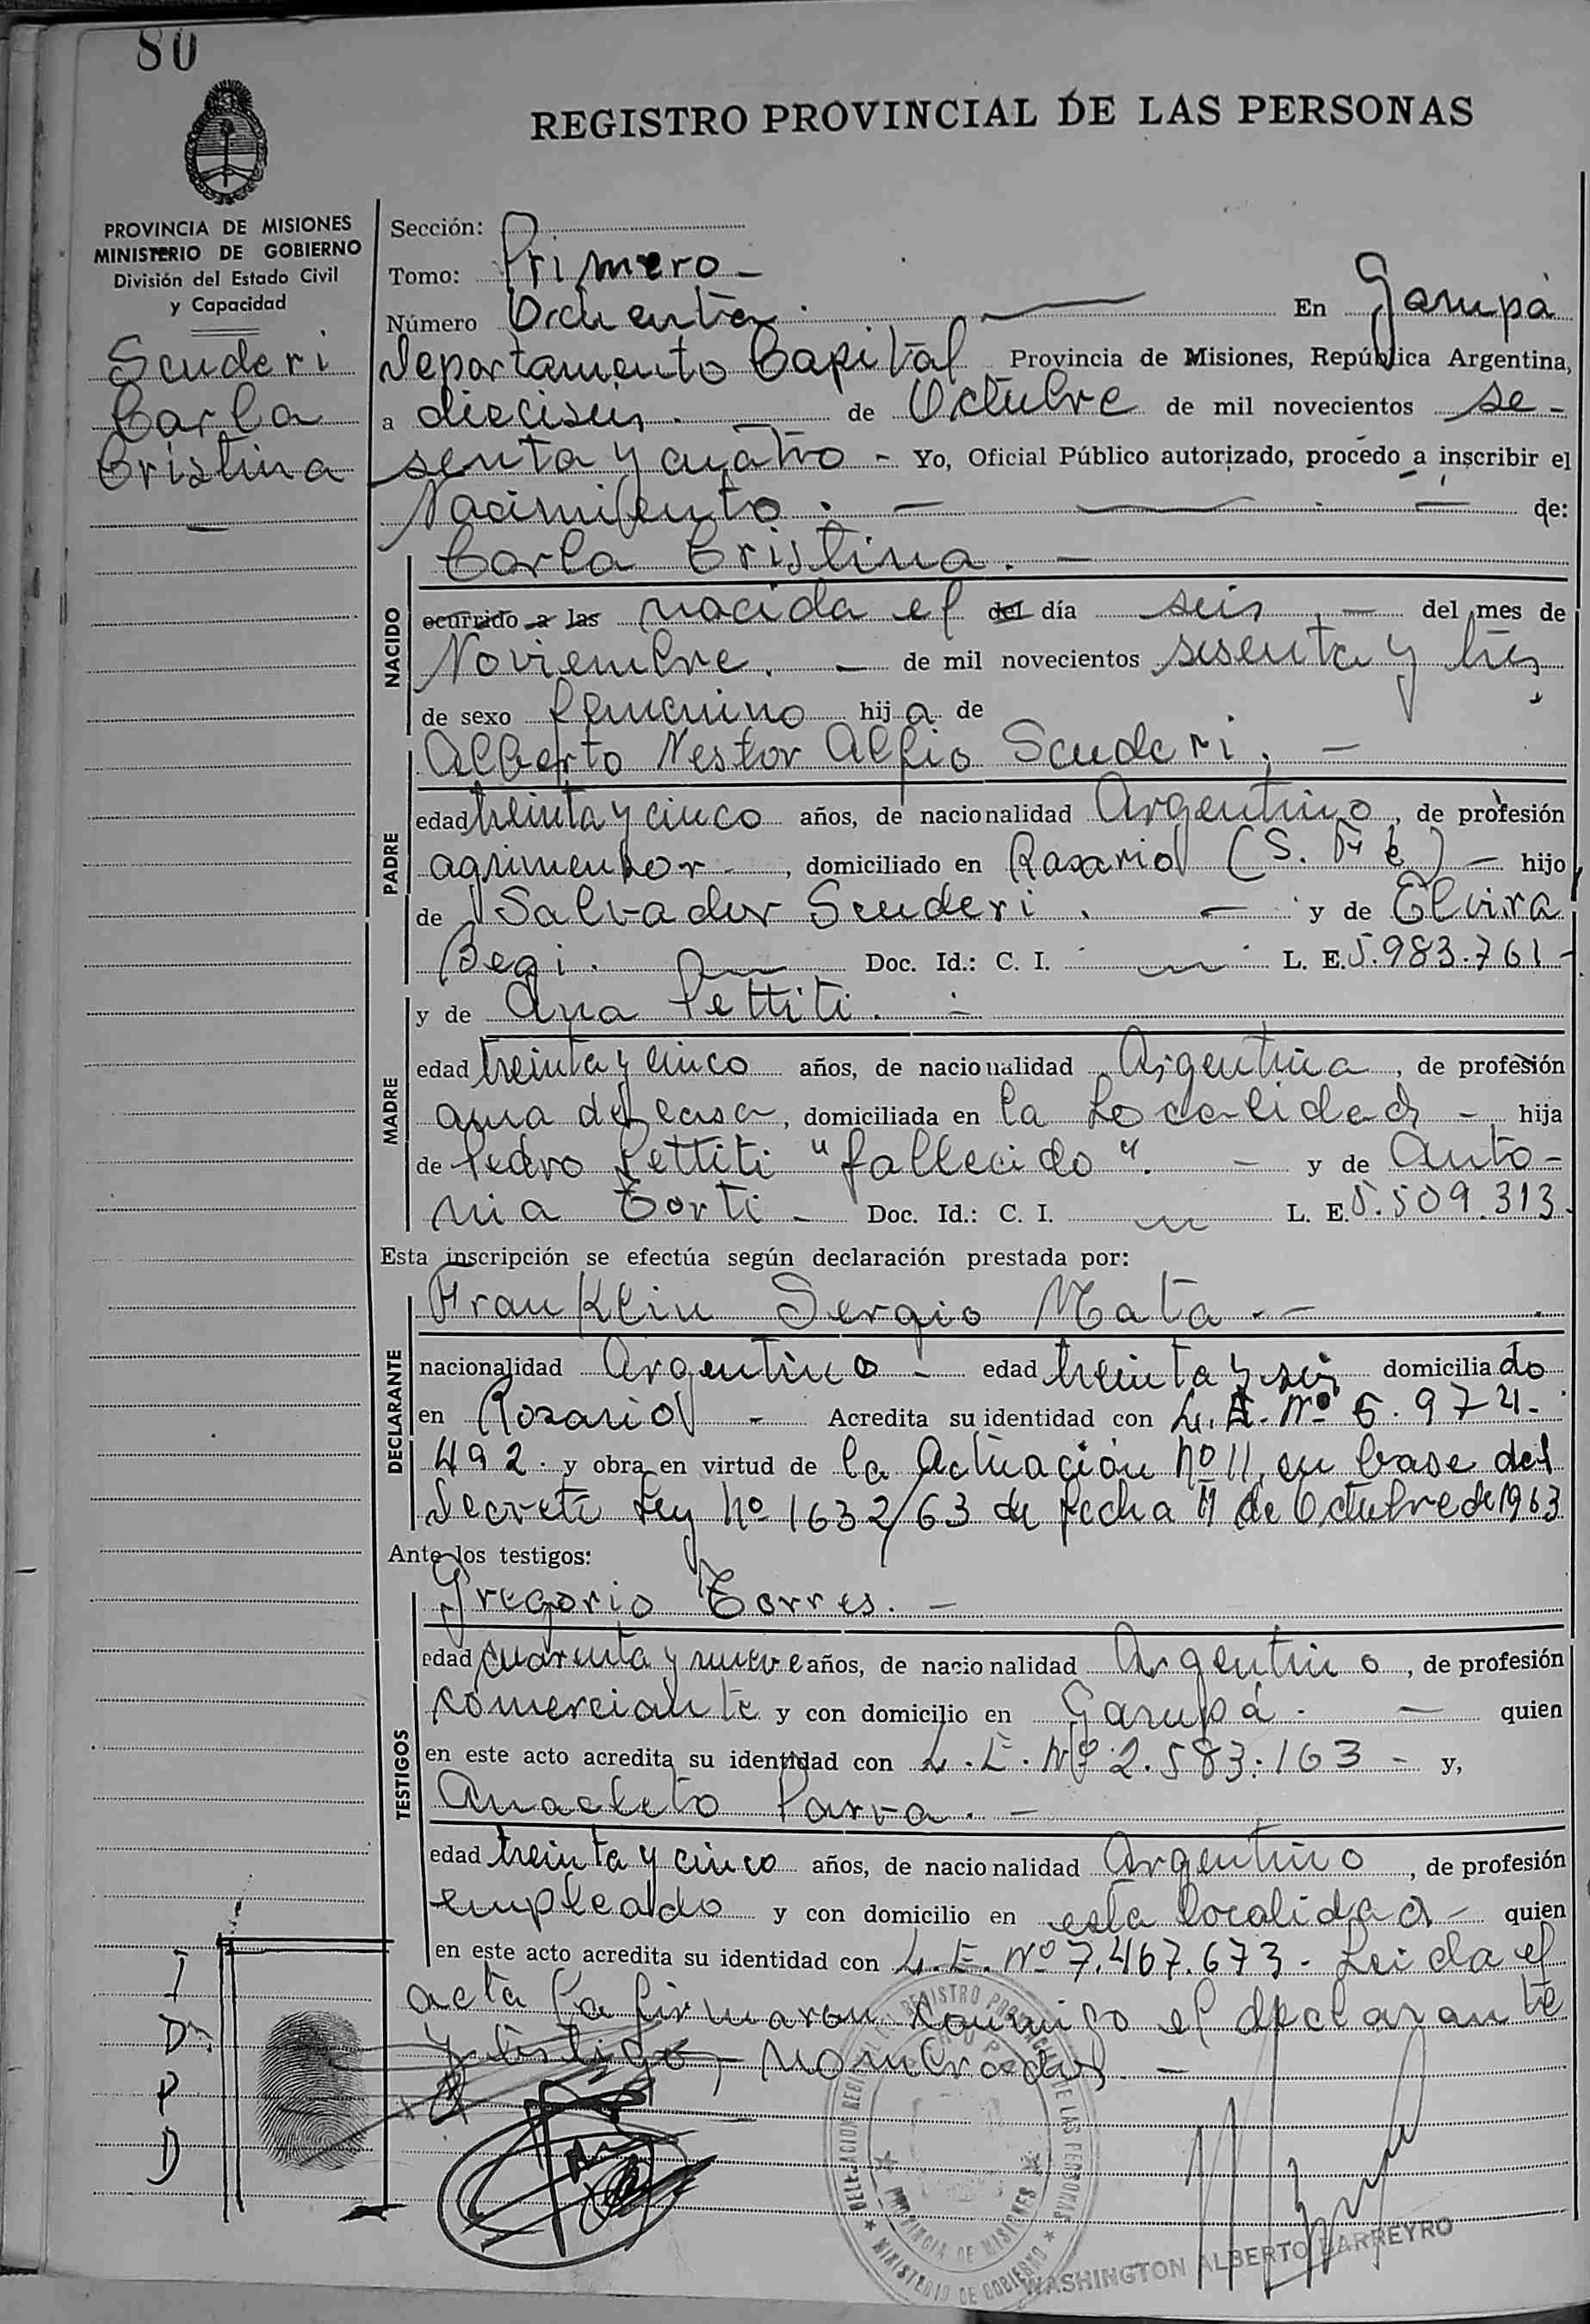 80
REGISTRO PROVINCIAL DE LAS PERSONAS
PROVINCIA DE MISIONES
MINISTERIO DE GOBIERNO
División del Estado Civil
y Capacidad
Scuderi
Carla
Cristina
Sección:
Tomo: Primero
Número Ochenta. En Garupá
Departamento Capital Provincia de Misiones, República Argentina,
a dieciseis. de Octubre de mil novecientos se-
senta y cuatro - Yo, Oficial Público autorizado, procedo a inscribir el
Nacimiento. de:
NACIDO
Carla Cristina.
ocurrido a las nacida el del día seis, del mes de
Noviembre. de mil novecientos sesenta y tres
de sexo femenino hija de
PADRE
Alberto Nestor Alfio Scuderi,
edad treinta y cinco años, de nacionalidad Argentino, de profesión
agrimensor, domiciliado en Rosario (S. Fé) hijo
de Salvador Scuderi. y de Elvira
Begi. Doc. Id.: C. I. L. E. 5.983.761
MADRE
y de Ana Pettiti.
edad treinta y cinco años, de nacionalidad Argentina, de profesión
ama de casa, domiciliada en la Localidad - hija
de Pedro Pettiti "fallecido". y de Anto-
nia Torti - Doc. Id.: C. I. L. E. 5.509.313.
Esta inscripción se efectúa según declaración prestada por:
DECLARANTE
Franklin Sergio Mata.
nacionalidad Argentino - edad treinta y seis domiciliado
en Rosario - Acredita su identidad con L. E. Nº 5.974.
492. y obra en virtud de la Actuación Nº 11, en base del
Decreto Ley Nº 1632/63 de fecha 11 de Octubre de 1963
Ante los testigos:
TESTIGOS
Gregorio Torres.
edad cuarenta y nueve años, de nacionalidad Argentino, de profesión
comerciante y con domicilio en Garupá. quien
en este acto acredita su identidad con L. E. Nº 2.583.163 - y,
Anacleto Parra.
edad treinta y cinco años, de nacionalidad Argentino, de profesión
empleado y con domicilio en esta localidad - quien
en este acto acredita su identidad con L. E. Nº 7.467.673 - Leida el
acta la firmaron conmigo el declarante
y testigos nombrados.
I
D
P
D
PROVINCIA DE MISIONES
MINISTERIO DE GOBIERNO
WASHINGTON ALBERTO BARREYRO